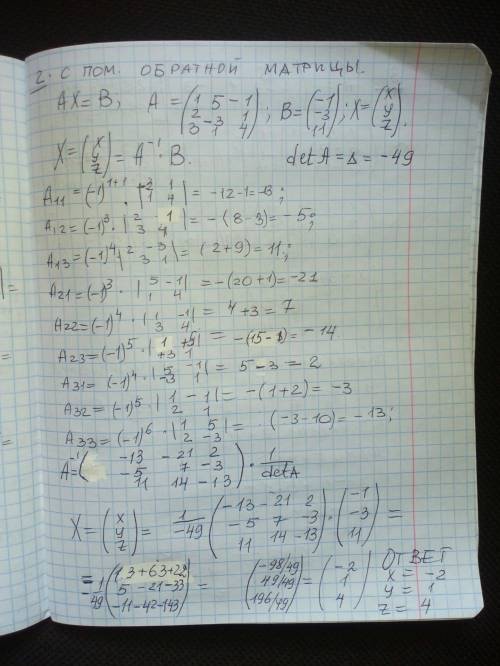 2. С ПОМ. ОБРАТНОЙ МАТРИЦЫ.
AX = B; A = (1 5 -1; 2 -3 1; 3 1 4); B = (-1; -3; 11); X = (x; y; z).
X = (x; y; z) = A⁻¹ · B. detA = Δ = -49
A11 = (-1)¹⁺¹ · |-3 1; 1 4| = -12-1 = -13;
A12 = (-1)³ · |2 1; 3 4| = -(8-3) = -5;
A13 = (-1)⁴ |2 -3; 3 1| = (2+9) = 11;
A21 = (-1)³ · |5 -1; 1 4| = -(20+1) = -21
A22 = (-1)⁴ · |1 -1; 3 4| = 4+3 = 7
A23 = (-1)⁵ · |1 +5; +3 1| = -(15-1) = -14
A31 = (-1)⁴ · |5 -1; -3 1| = 5-3 = 2
A32 = (-1)⁵ · |1 -1; 2 1| = -(1+2) = -3
A33 = (-1)⁶ · |1 5; 2 -3| = (-3-10) = -13;
A⁻¹ = (-13 -21 2; -5 7 -3; 11 14 -13) · 1/detA
X = (x; y; z) = 1/-49 (-13 -21 2; -5 7 -3; 11 14 -13) · (-1; -3; 11) =
= -1/49 (13+63+22; 5 -21-33; -11-42-143) = (-98/49; 49/49; 196/49) = (-2; 1; 4)
ОТВЕТ
x = -2
y = 1
z = 4